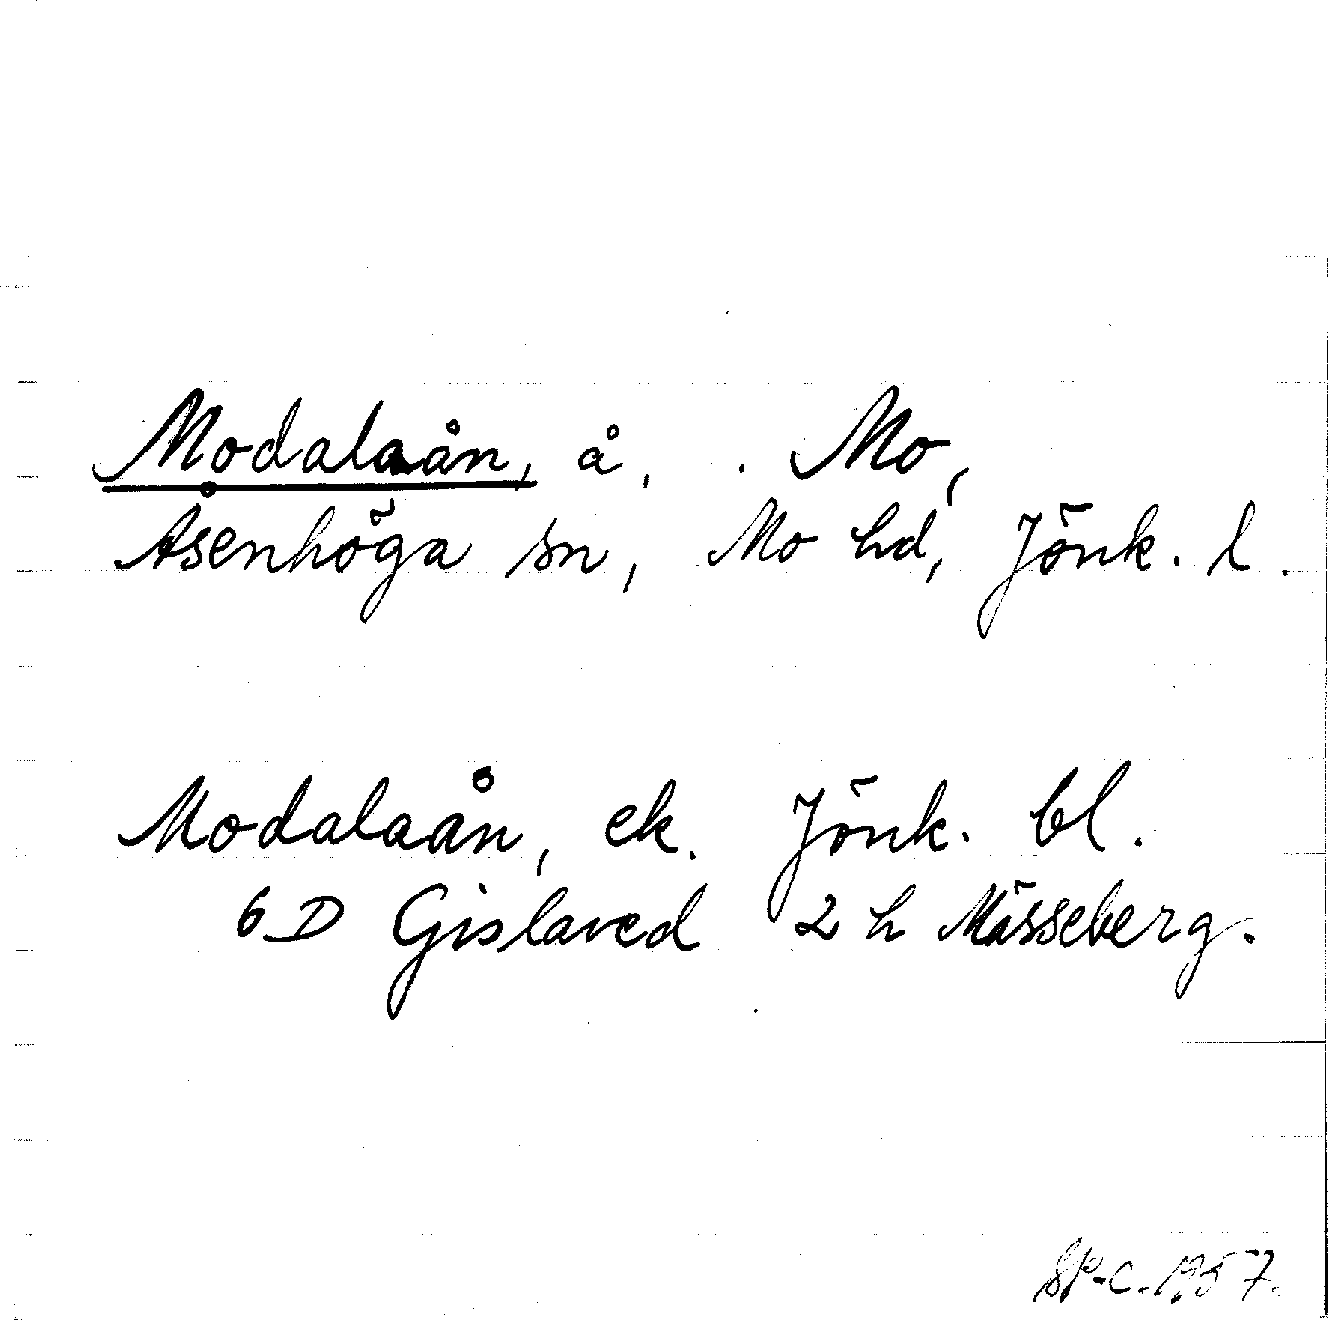 Modalaån, å, . Mo,
Åsenhöga sn, Mo hd, Jönk. l.
Modalaån, ek. Jönk. bl.
6 D Gislaved 2 h Mässeberg.
SP-C. 1957.